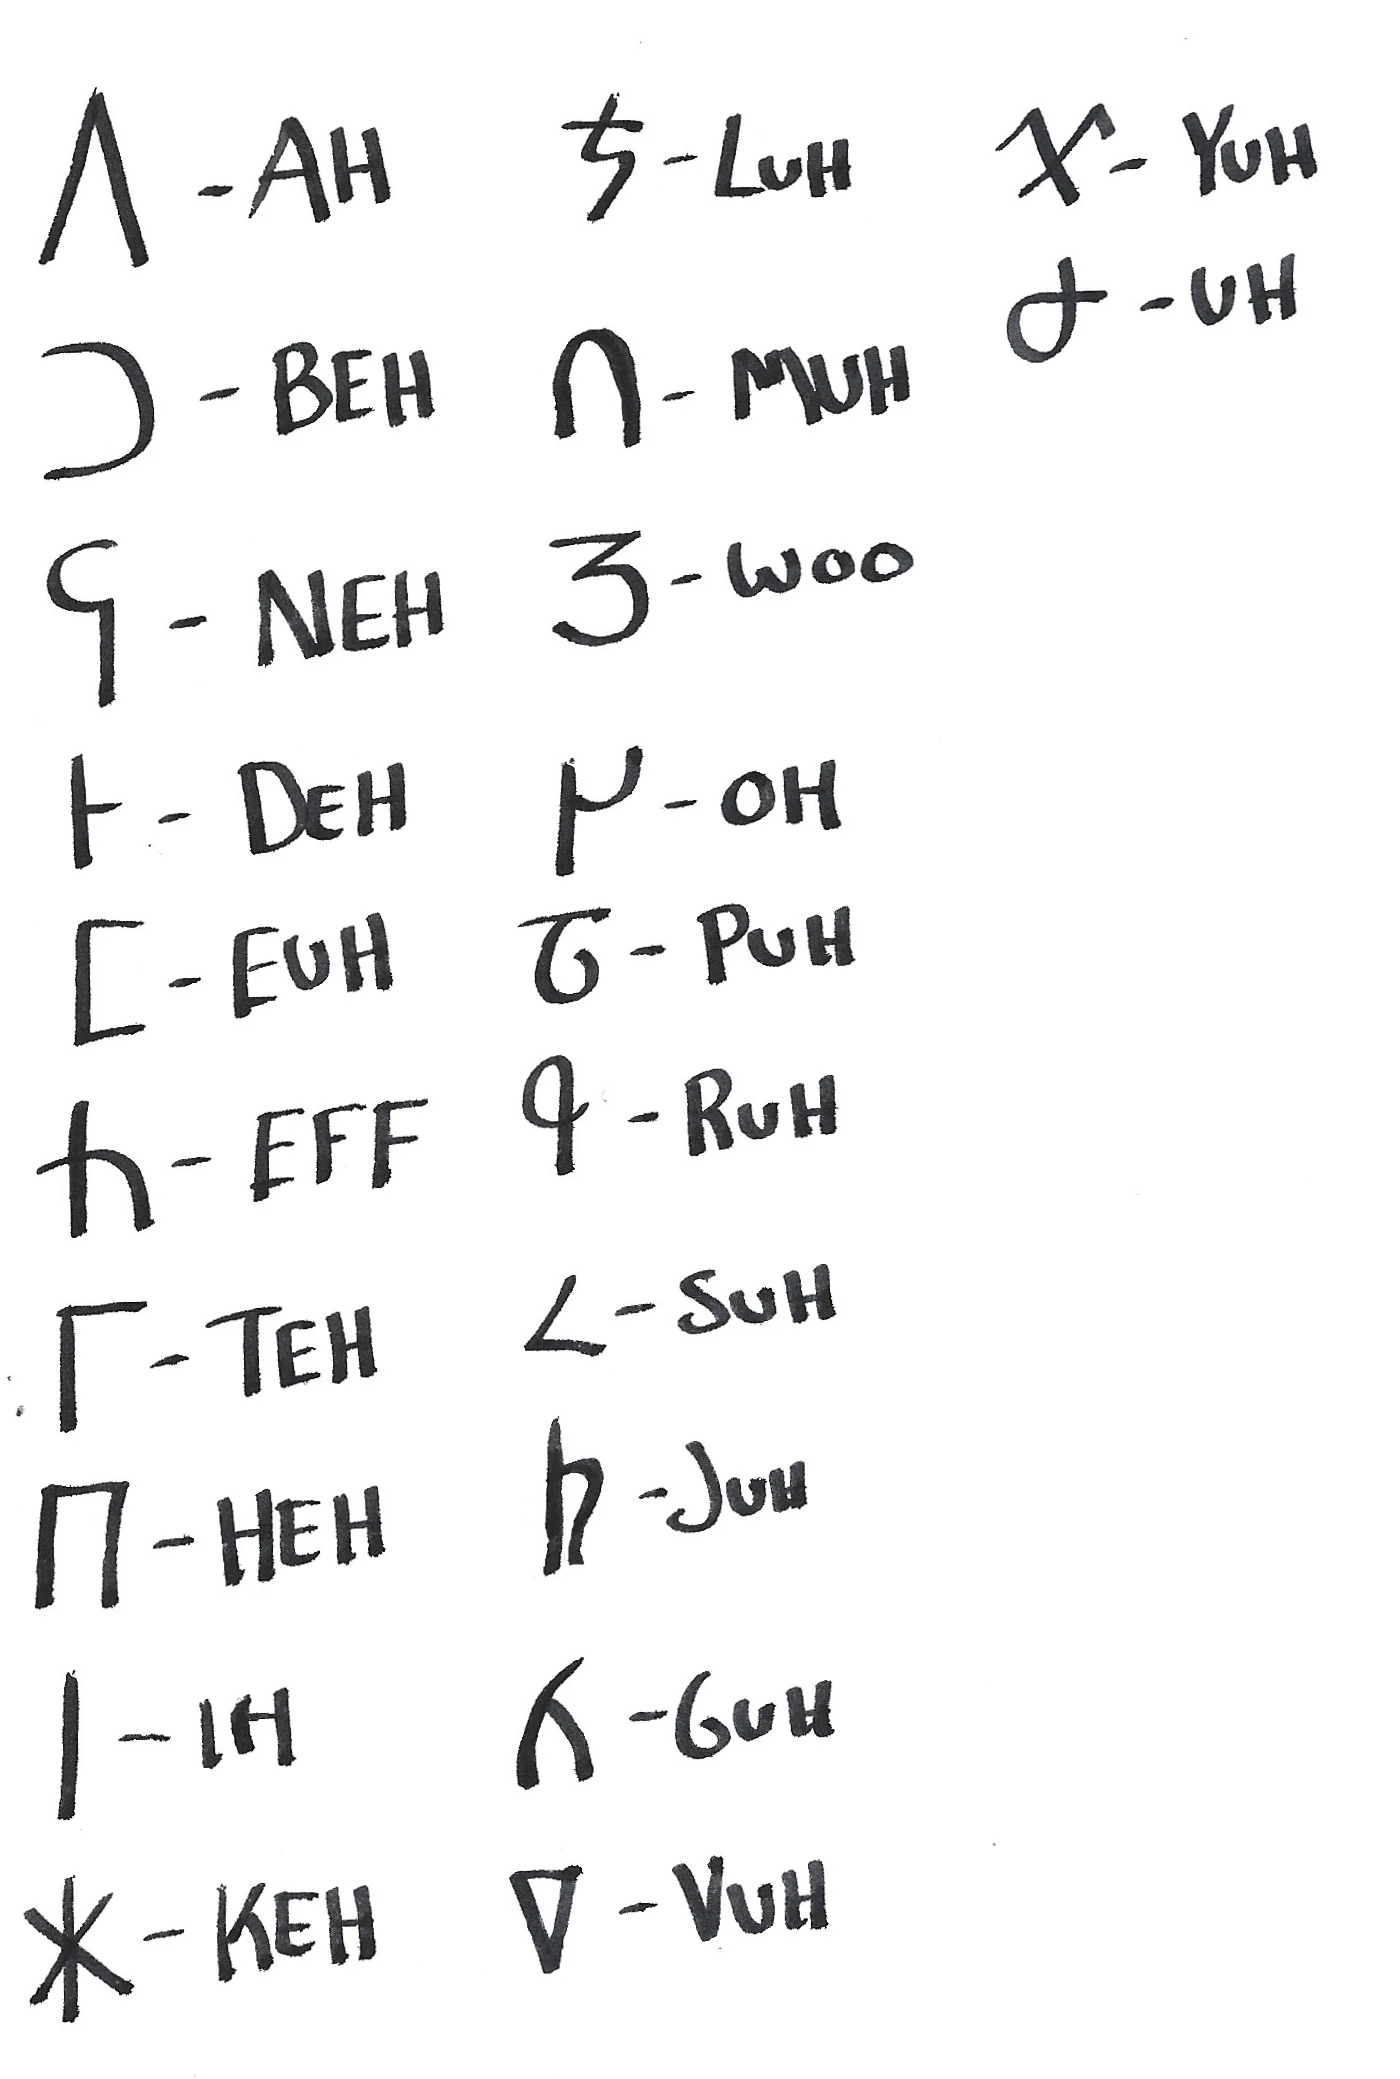 Λ - AH
Ͻ - BEH
Ϛ - NEH
Ⱶ - DEH
[ - EUH
ዡ - EFF
Γ - TEH
Π - HEH
| - IH
Ж - KEH
ち - LUH
∩ - MUH
3 - WOO
Ɥ - OH
ꞇ - PUH
ʠ - RUH
∠ - SUH
Һ - JUH
ʎ - GUH
∇ - VUH
X - YUH
ძ - UH